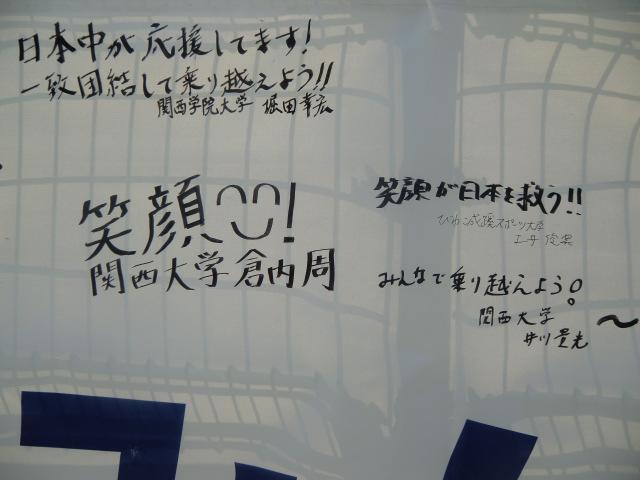 日本中が応援してます!
一致団結して乗り越えよう!!
関西学院大学 堀田 幸宏
笑顔
関西大学 倉内 周
笑顔が日本を救う!!
びわこ成蹊スポーツ大学
みんなで乗り越えよう。
関西大学
井川 貴光